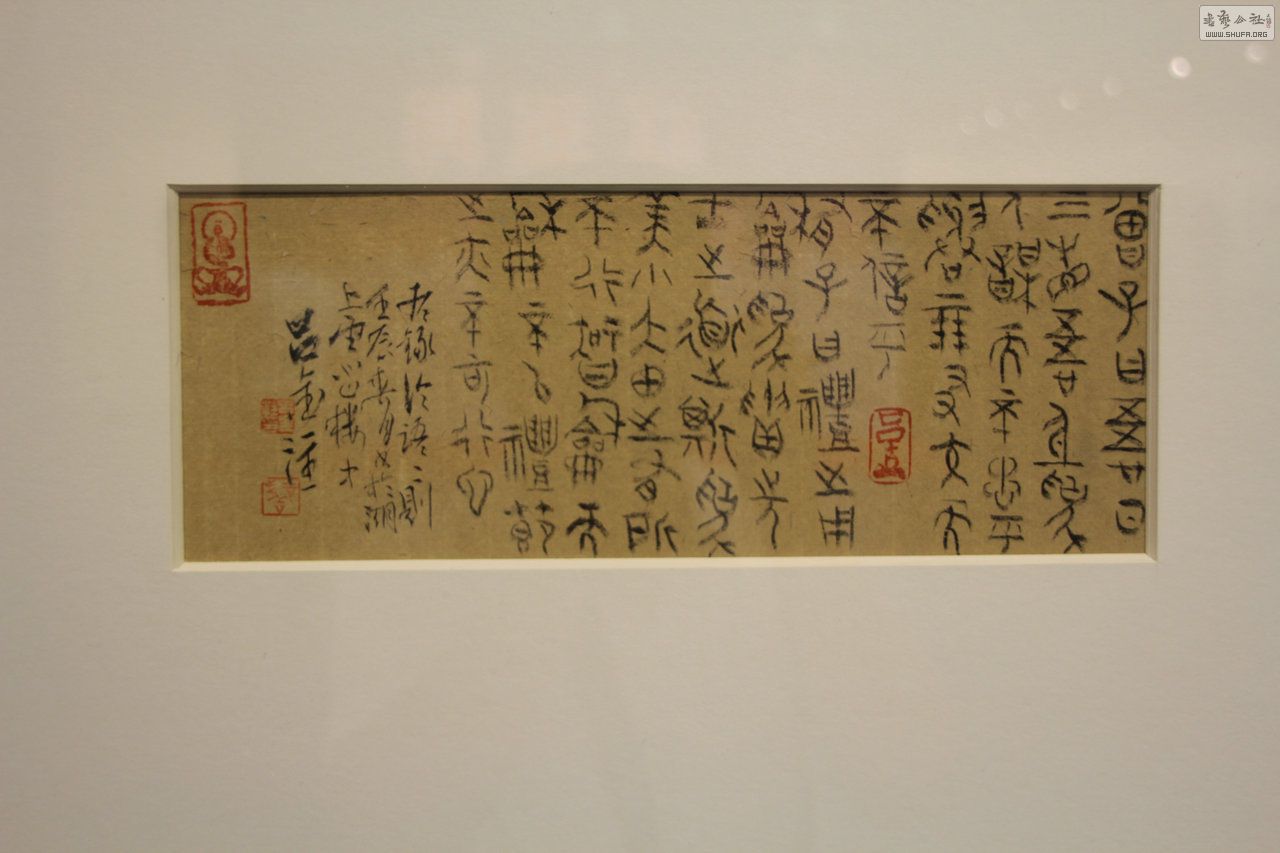 曾子曰吾日
三省吾身為
人謀而不忠乎
與朋友交而
不信乎
有子曰禮之用
和為貴先
王之道斯為
美小大由之有所
不行知和而
和不以禮節
之亦不可行也
右錄論語二則
壬辰春月於湖
上樓
呂金柱
书艺公社
WWW.SHUFA.ORG